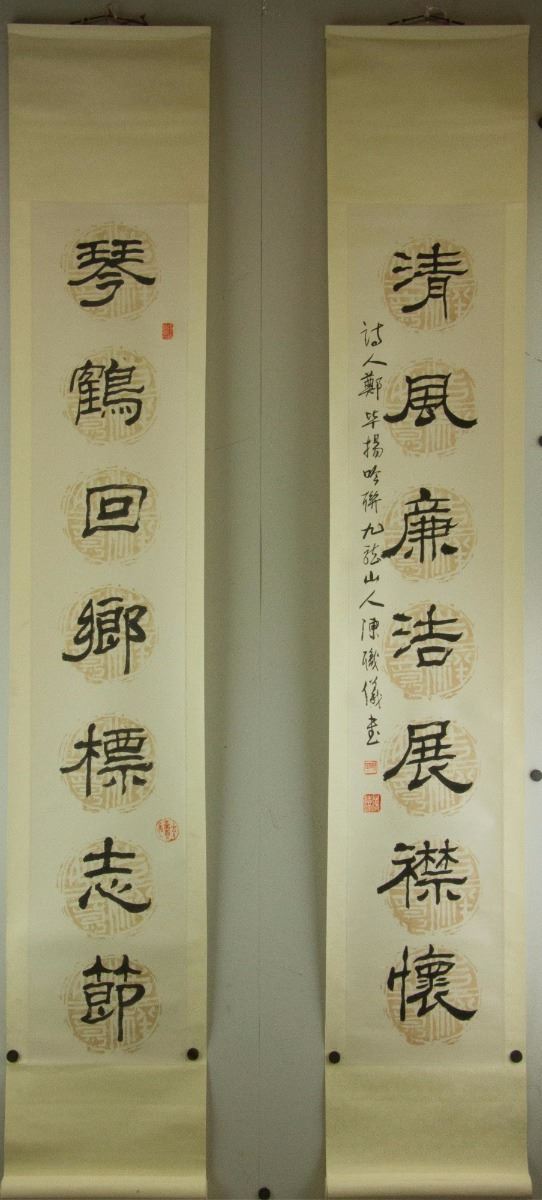 琴鶴回鄉標志節
清風廉浩展襟懷
詩人鄭毕揚吟聯九龍山人陳礒儀書